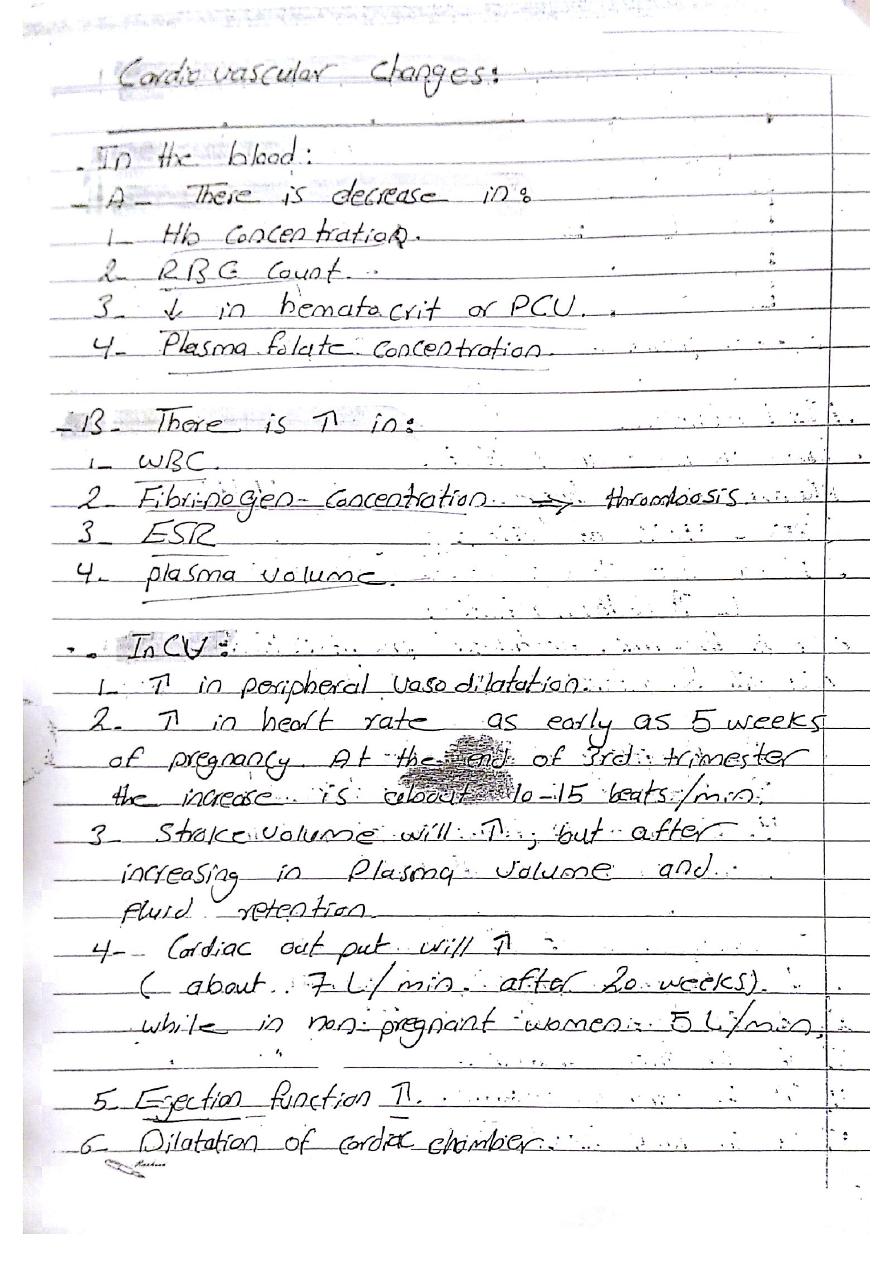 Cardio vascular changes:
- In the blood:
- A - There is decrease in:
1- Hb concentration.
2- RBC count.
3- ↓ in hematocrit or PCV.
4- Plasma folate concentration.
- B - There is ↑ in:
1- WBC.
2- Fibrinogen - concentration ⇒ thrombosis.
3- ESR
4- plasma volume.
. In CV:
1- ↑ in peripheral vasodilatation.
2- ↑ in heart rate as early as 5 weeks
of pregnancy. At the end of 3rd trimester
the increase is about 10-15 beats/min.
3- Stroke volume will ↑, but after
increasing in Plasma volume and
fluid retention
4- Cardiac out put will ↑
( about 7 L/min. after 20 weeks).
while in non-pregnant women 5 L/min,
5- Ejection function ↑.
6- Dilatation of cardiac chamber.